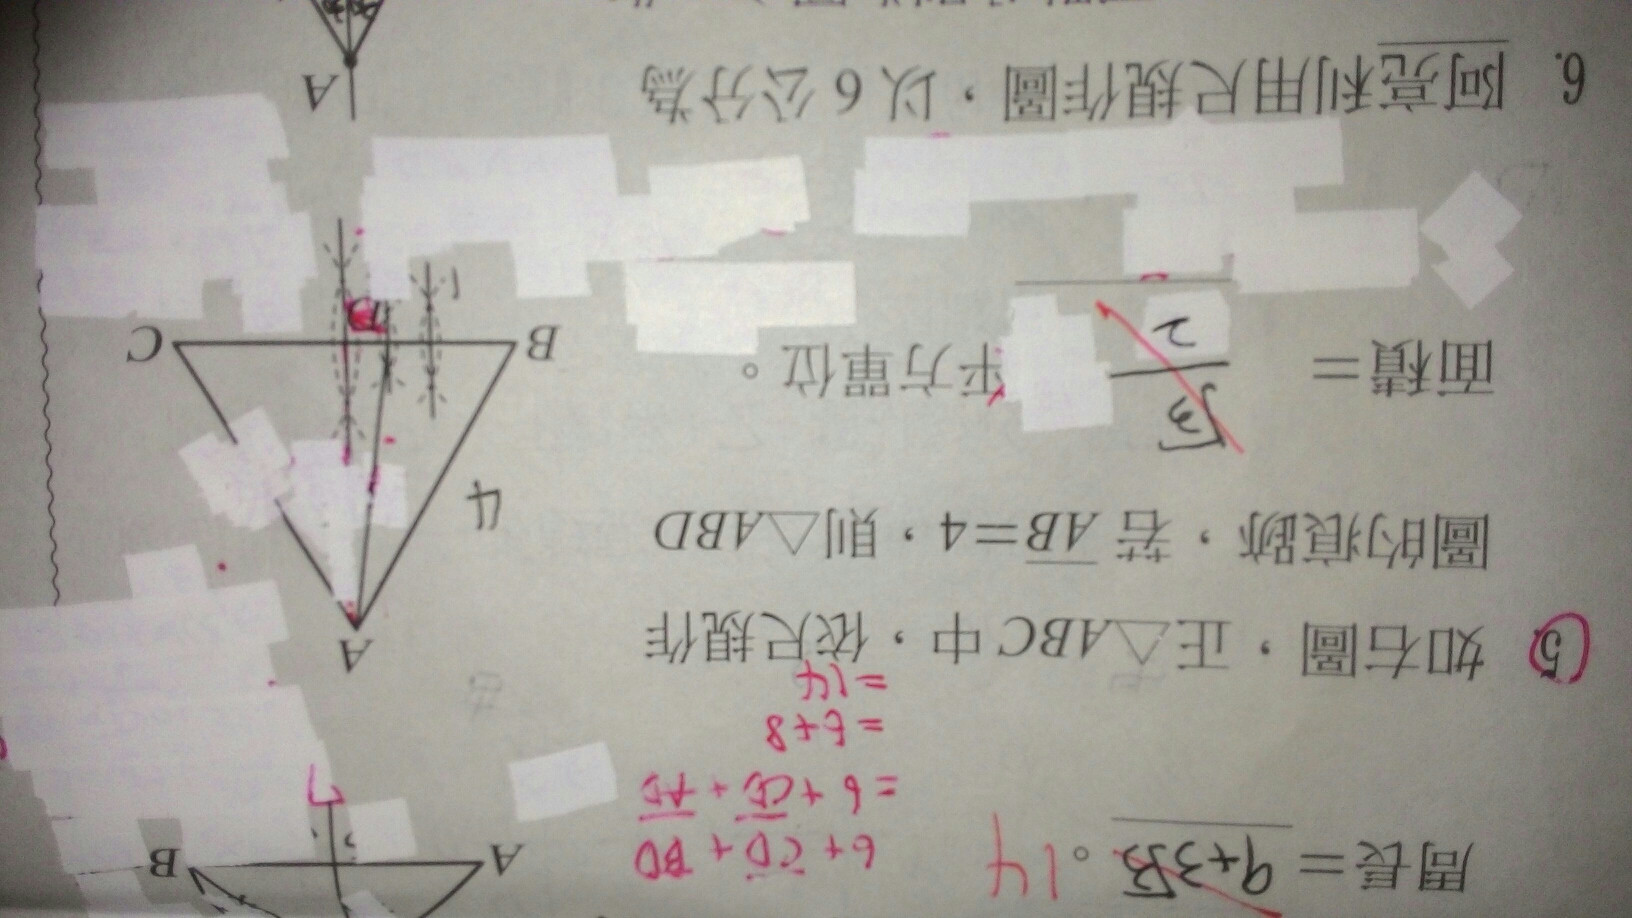 周長=9+3√3。14
6+CD+BD
=6+CD+AD
=6+8
=14
A
B
5.
如右圖,正△ABC中,依尺規作
圖的痕跡,若AB=4,則△ABD
面積=√3/2平方單位。
A
4
B
C
D
6.
阿亮利用尺規作圖,以6公分為
A